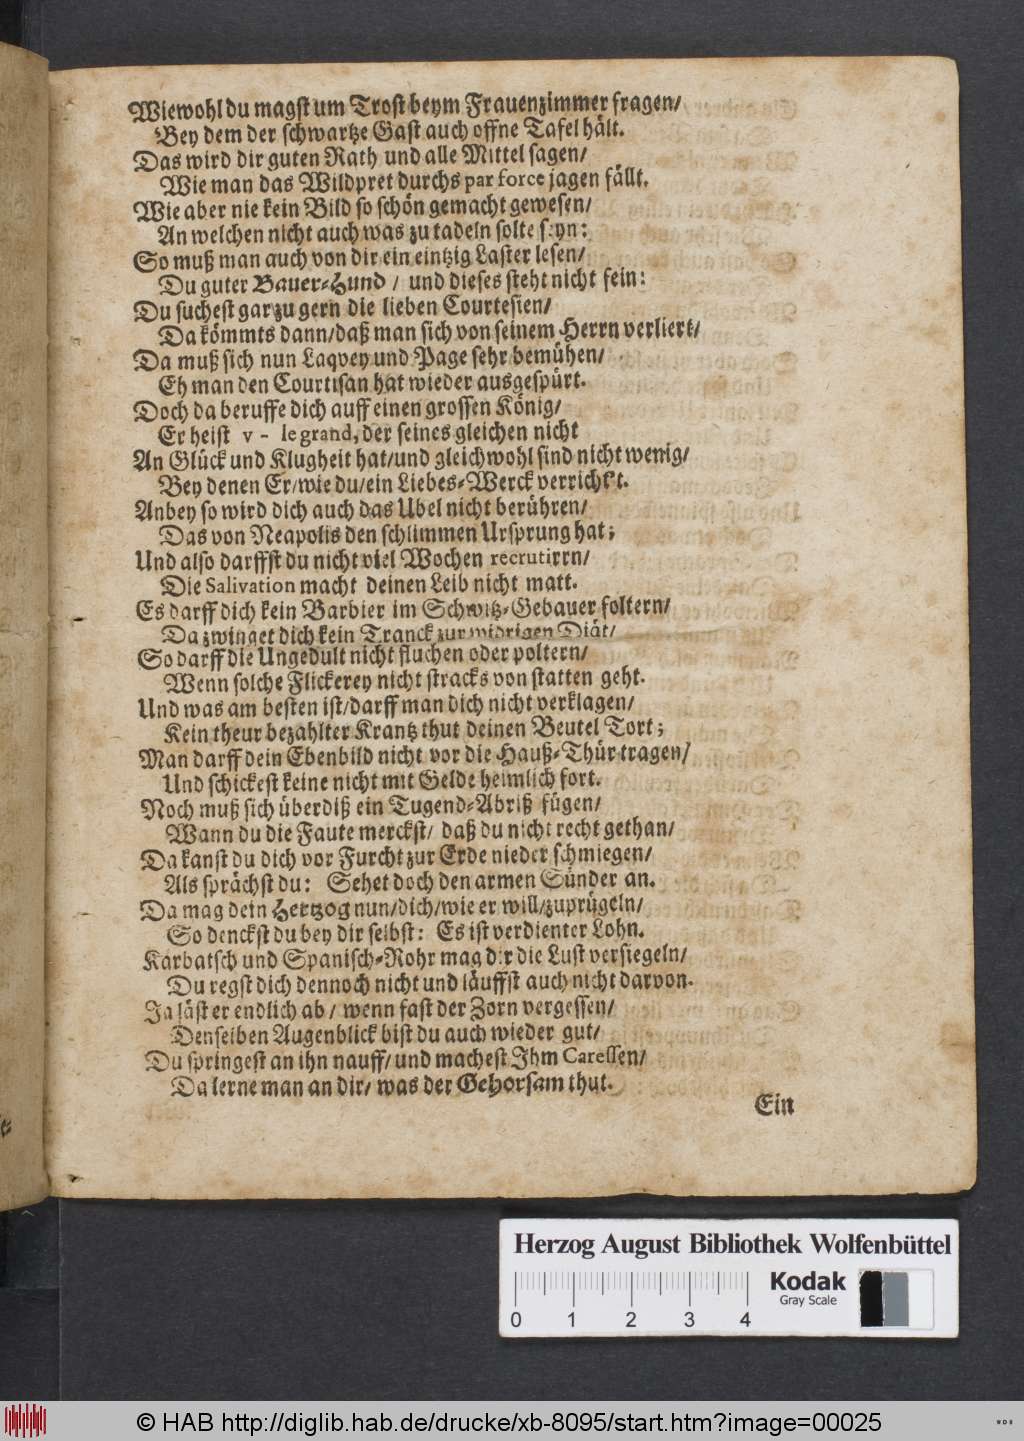 Wiewohl du magst um Trost beym Frauenzimmer fragen/
Bey dem der schwartze Gast auch offne Tafel hält.
Das wird dir guten Rath und alle Mittel sagen/
Wie man das Wildpret durchs par force jagen fällt.
Wie aber nie kein Bild so schön gemacht gewesen/
An welchen nicht auch was zu tadeln solte seyn:
So muß man auch von dir ein eintzig Laster lesen/
Du guter Bauer-Hund / und dieses steht nicht fein:
Du suchest gar zu gern die lieben Courtesien/
Da kömmts dann/daß man sich von seinem Herrn verliert/
Da muß sich nun Laqvey und Page sehr bemühen/
Eh man den Courtisan hat wieder ausgespürt.
Doch da beruffe dich auff einen grossen König/
Er heist v - le grand, der seines gleichen nicht
An Glück und Klugheit hat/und gleichwohl sind nicht wenig/
Bey denen Er/wie du/ein Liebes-Werck verricht't.
Anbey so wird dich auch das Ubel nicht berühren/
Das von Neapolis den schlimmen Ursprung hat;
Und also darffst du nicht viel Wochen recrutirrn/
Die Salivation macht deinen Leib nicht matt.
Es darff dich kein Barbier im Schwitz-Gebauer foltern/
Da zwinget dich kein Tranck zur widrigen Diät/
So darff die Ungedult nicht fluchen oder poltern/
Wenn solche Flickerey nicht stracks von statten geht.
Und was am besten ist/darff man dich nicht verklagen/
Kein theur bezahlter Krantz thut deinen Beutel Tort;
Man darff dein Ebenbild nicht vor die Hauß-Thür tragen/
Und schickest keine nicht mit Gelde heimlich fort.
Noch muß sich überdiß ein Tugend-Abriß fügen/
Wann du die Faute merckst/ daß du nicht recht gethan/
Da kanst du dich vor Furcht zur Erde nieder schmiegen/
Als sprächst du: Sehet doch den armen Sünder an.
Da mag dein Hertzog nun/dich/wie er will/zuprügeln/
So denckst du bey dir selbst: Es ist verdienter Lohn.
Karbatsch und Spanisch-Rohr mag dir die Lust versiegeln/
Du regst dich dennoch nicht und läuffst auch nicht darvon.
Ja läst er endlich ab / wenn fast der Zorn vergessen/
Denselben Augenblick bist du auch wieder gut/
Du springest an ihn nauff/ und machest Ihm Caressen/
Da lerne man an dir/ was der Gehorsam thut.
Ein
Herzog August Bibliothek Wolfenbüttel
Kodak
Gray Scale
0 1 2 3 4
© HAB http://diglib.hab.de/drucke/xb-8095/start.htm?image=00025